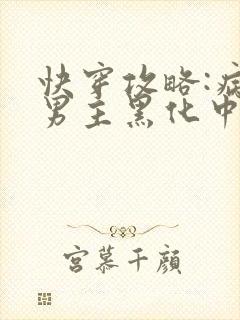 快穿攻略:病
男主黑化中
宮慕千顔